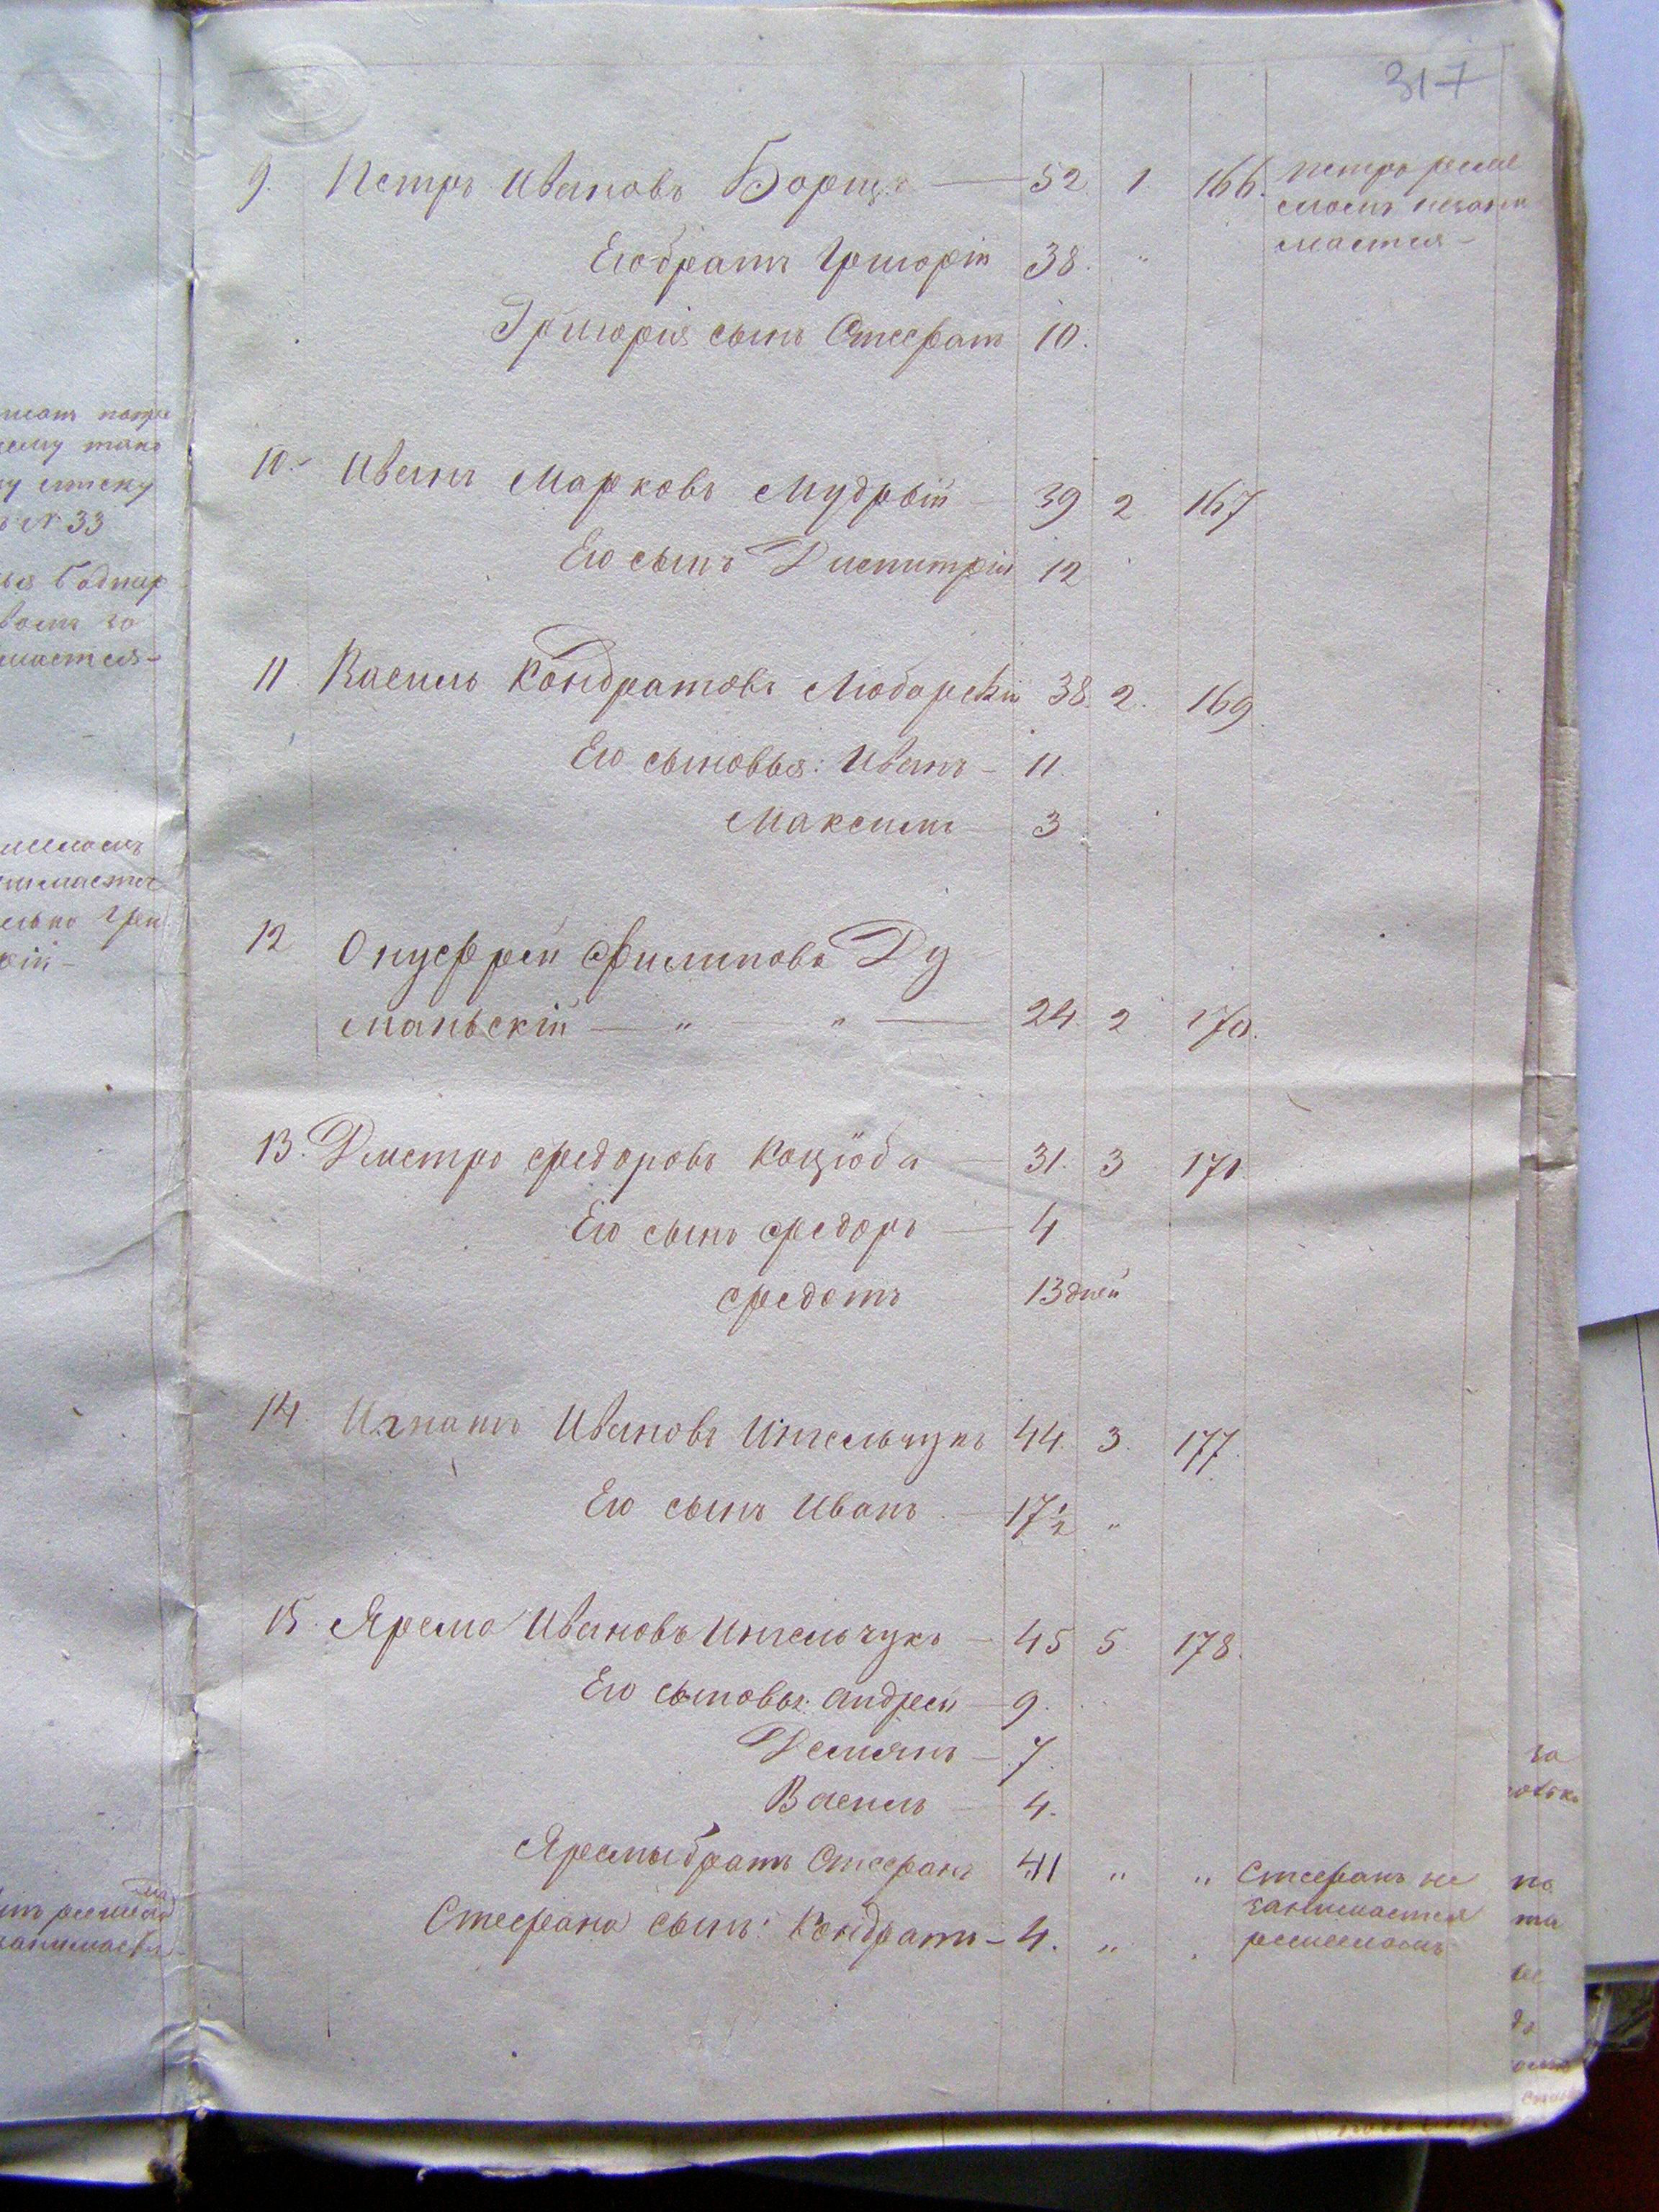 317
9. Петръ Ивановъ Борщъ — 52. 1. 166. Петръ ремес
сломъ незани
мается —
Его братъ Григорій 38. "
Григорія сынъ Стефанъ 10.
10. Иванъ Марковъ Мудрый — 39 2 167
Его сынъ Димитрій 12
11 Василь Кондратовъ Любарскій 38. 2. 169.
Его сыновья: Иванъ — 11.
Максимъ 3
12 Онуфрей Филиповъ Ду
маньскій — " — " — 24. 2 170.
13. Дметро Федоровъ Коцюба — 31. 3 171.
Его сынъ Федоръ — 4
Федотъ 13 дней
14. Игнатъ Ивановъ 44. 3. 177.
Его сынъ Иванъ — 17 1/2 "
15. Ярема Ивановъ — 45 5 178.
Его сыновья: Андрей — 9.
Демянъ — 7.
Василь — 4.
Яремы братъ Стефанъ 41 " " Стефанъ не
занимается
ремесломъ
Стефана сынъ: Кондратъ — 4. "